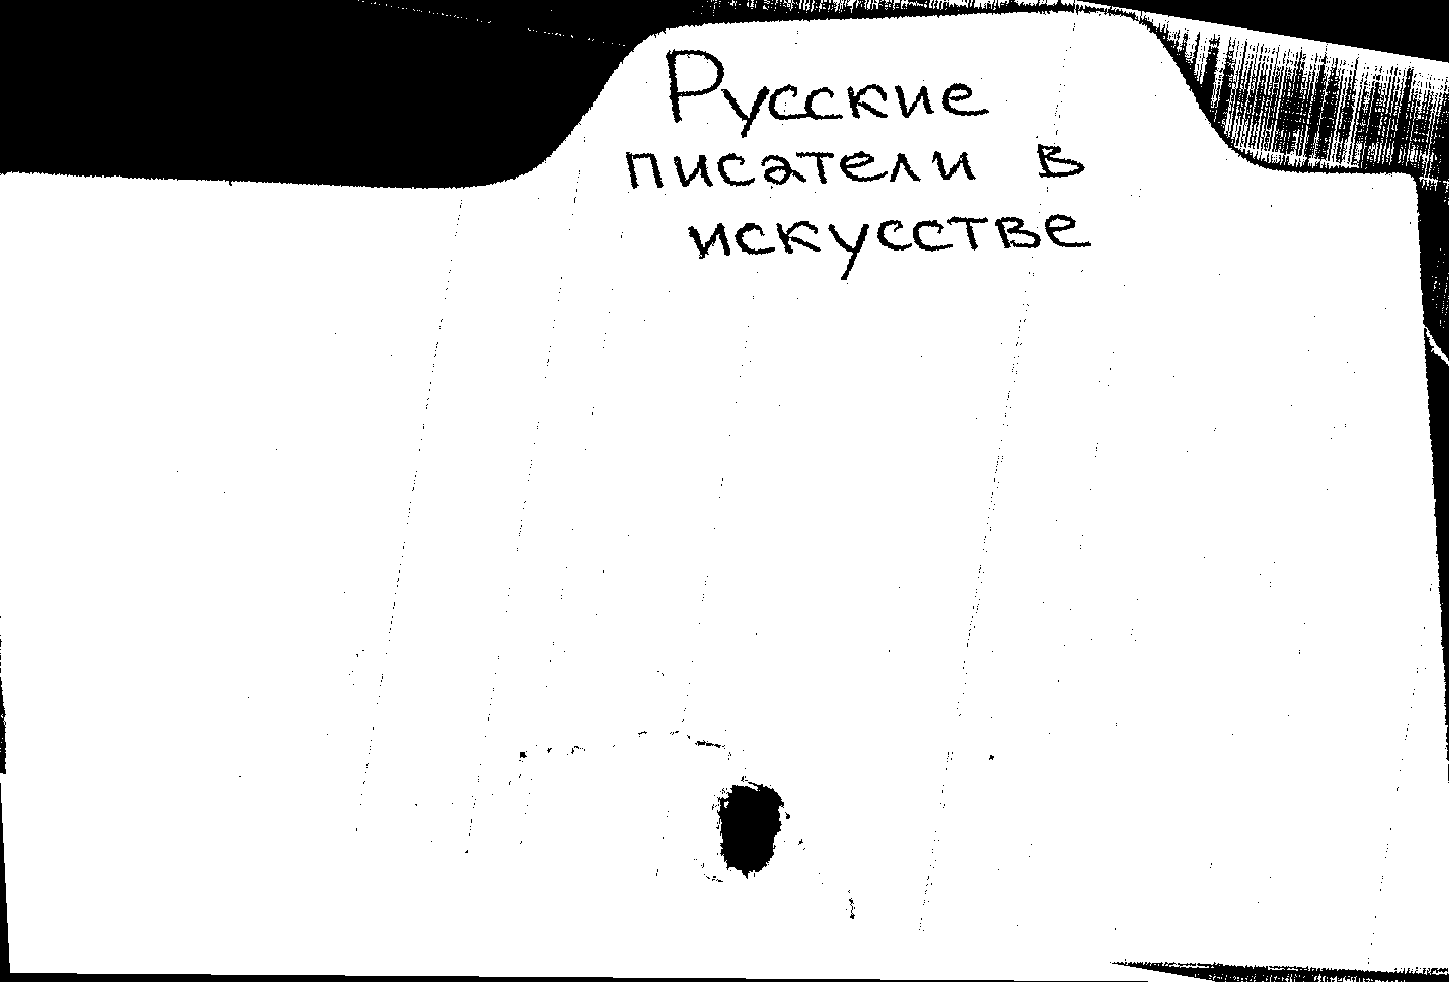 Русские
писатели в
искусстве